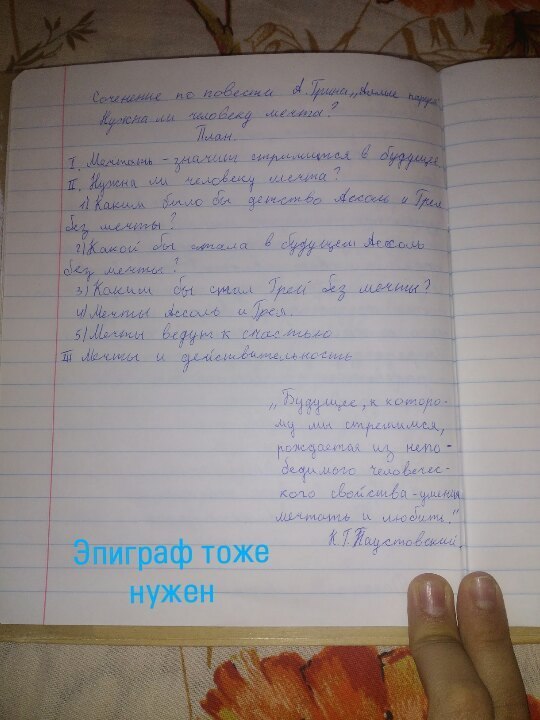 Сочинение по повести А.Грина „Алые паруса"
Нужна ли человеку мечта?
План.
I. Мечтать - значит стремиться в будущее.
II. Нужна ли человеку мечта?
1) Каким было бы детство Ассоль и Грея
без мечты?
2) Какой бы стала в будущем Ассоль
без мечты?
3) Каким бы стал Грей без мечты?
4) Мечты Ассоль и Грея.
5) Мечты ведут к счастью
III Мечты и действительность
„Будущее, к которо-
му мы стремимся,
рождается из непо-
бедимого человечес-
кого свойства - умения
мечтать и любить."
К.Г.Паустовский.
Эпиграф тоже
нужен